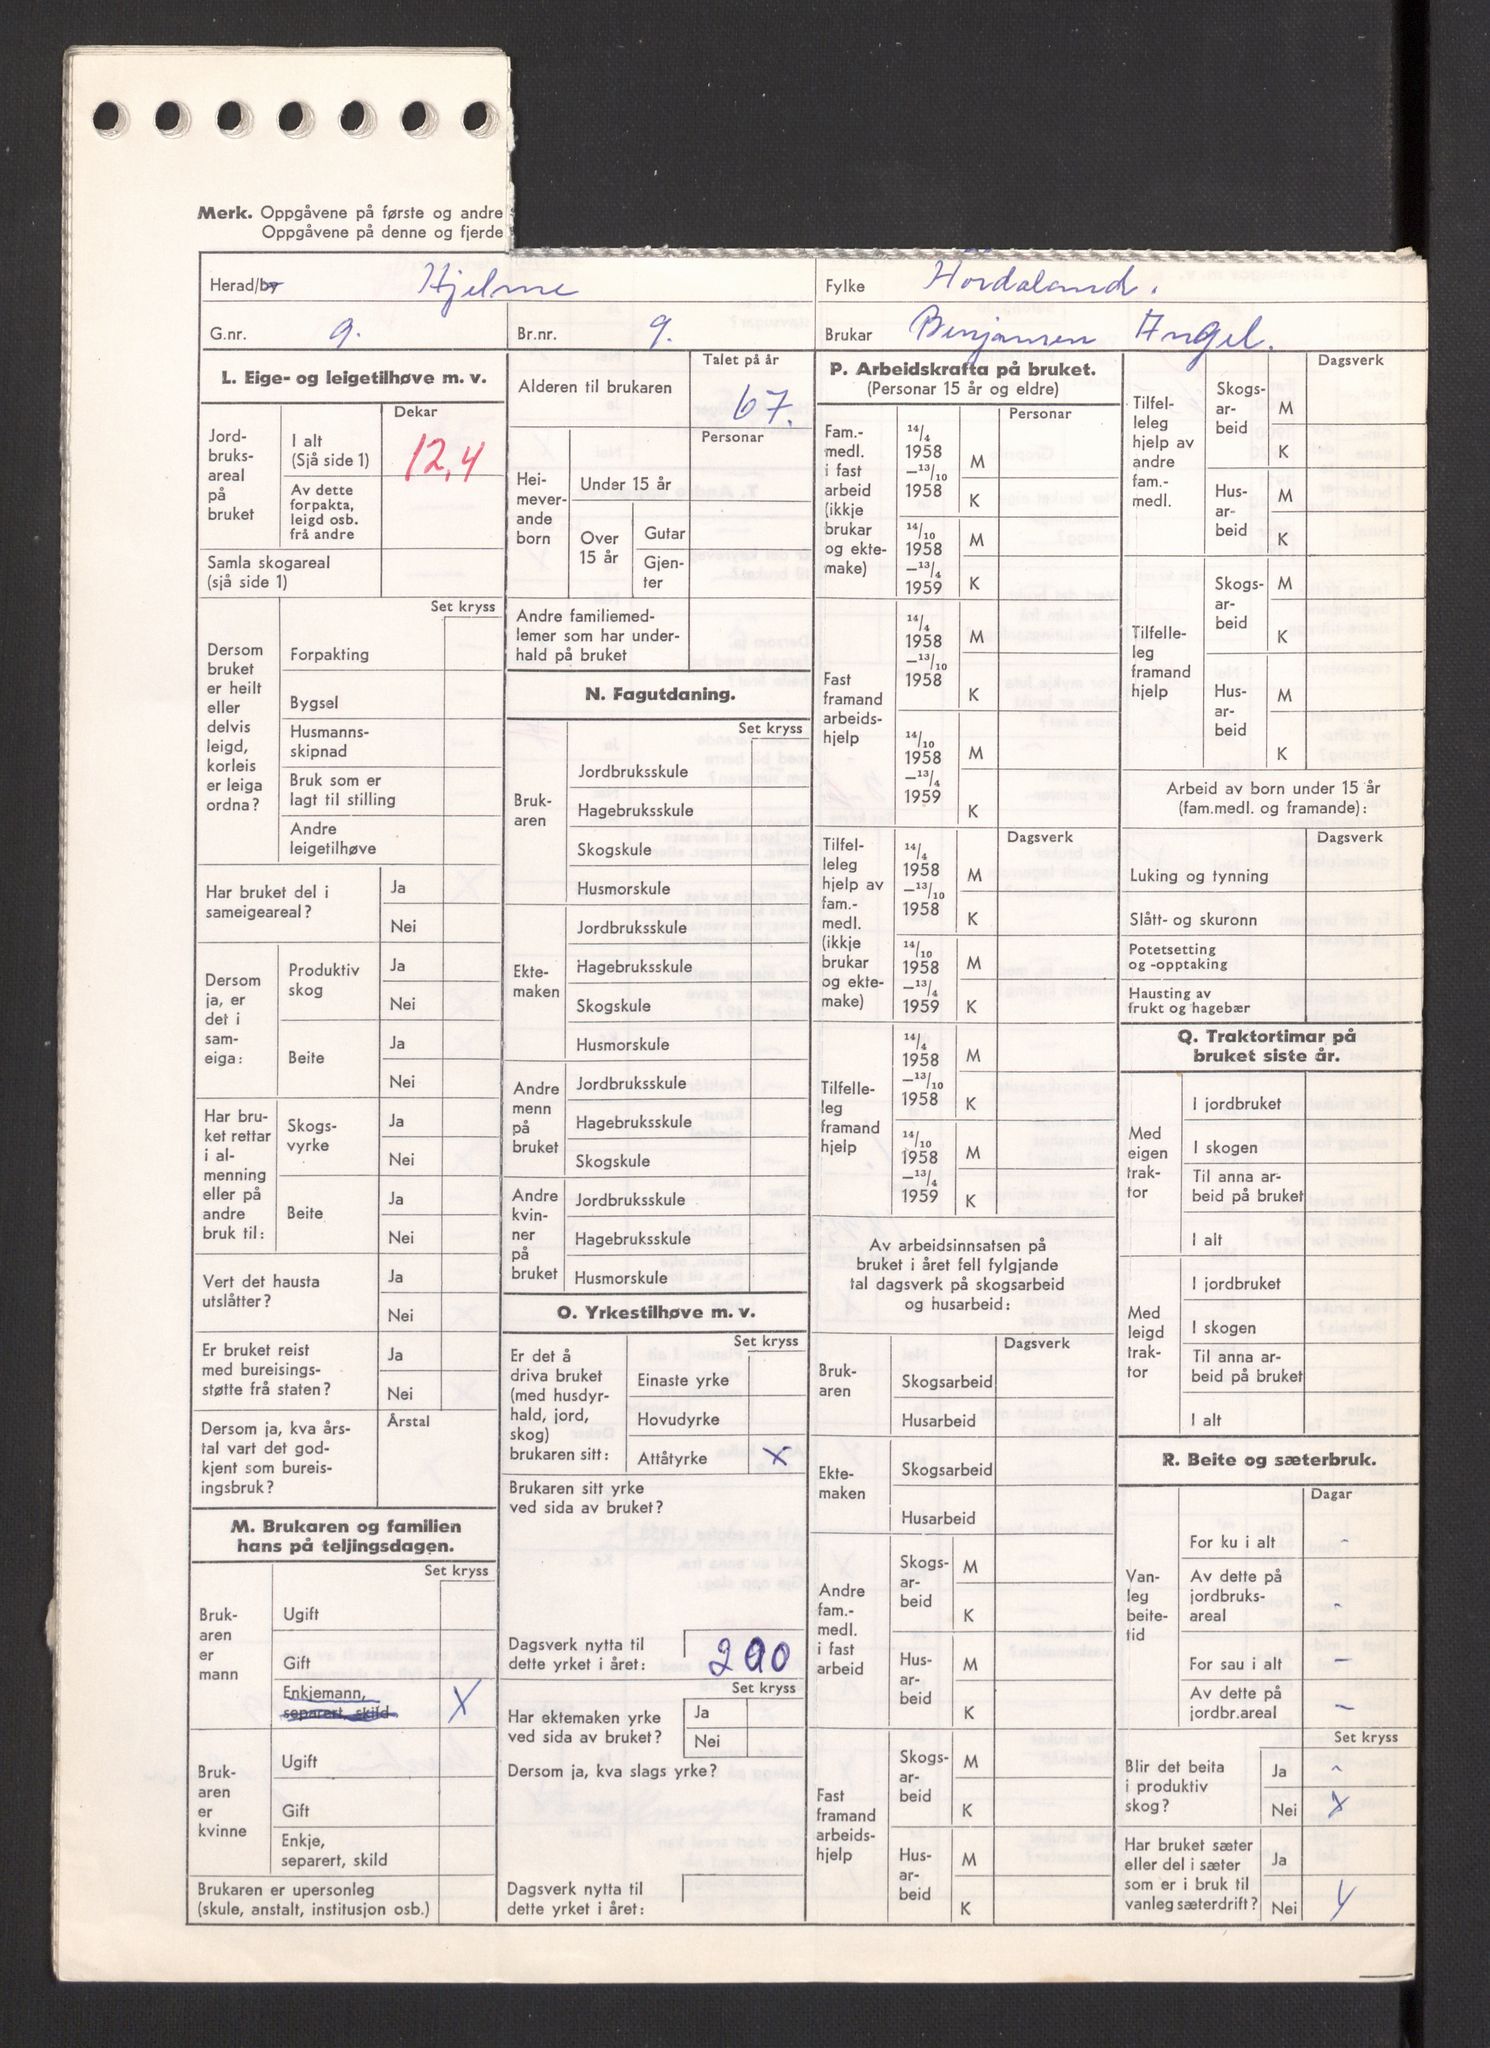 Merk. Oppgåvene på første og andre
Oppgåvene på denne og fjerde
Herad/by Hjelme
Fylke Hordaland.
G.nr. 9.
Br.nr. 9.
Brukar Benjamen Angel.
L. Eige- og leigetilhøve m. v.
Dekar
Jord-
bruks-
areal
på
bruket
I alt
(Sjå side 1)
12,4
Av dette
forpakta,
leigd osb.
frå andre
Samla skogareal
(sjå side 1)
Set kryss
Dersom
bruket
er heilt
eller
delvis
leigd,
korleis
er leiga
ordna?
Forpakting
Bygsel
Husmanns-
skipnad
Bruk som er
lagt til stilling
Andre
leigetilhøve
Har bruket del i
sameigeareal?
Ja
Nei
Dersom
ja, er
det i
sam-
eiga:
Produktiv
skog
Ja
Nei
Beite
Ja
Nei
Har bru-
ket rettar
i al-
menning
eller på
andre
bruk til:
Skogs-
vyrke
Ja
Nei
Beite
Ja
Nei
Vert det hausta
utslåtter?
Ja
Nei
Er bruket reist
med bureisings-
støtte frå staten?
Ja
Nei
Dersom ja, kva års-
tal vart det god-
kjent som bureis-
ingsbruk?
Årstal
M. Brukaren og familien
hans på teljingsdagen.
Set kryss
Bruk-
aren
er
mann
Ugift
Gift
Enkjemann,
separert, skild
X
Bruk-
aren
er
kvinne
Ugift
Gift
Enkje,
separert, skild
Brukaren er upersonleg
(skule, anstalt, institusjon osb.)
Talet på år
Alderen til brukaren
67.
Personar
Hei-
mever-
ande
born
Under 15 år
Over
15 år
Gutar
Gjen-
ter
Andre familiemed-
lemer som har under-
hald på bruket
N. Fagutdaning.
Set kryss
Bruk-
aren
Jordbruksskule
Hagebruksskule
Skogskule
Husmorskule
Ekte-
maken
Jordbruksskule
Hagebruksskule
Skogskule
Husmorskule
Andre
menn
på
bruket
Jordbruksskule
Hagebruksskule
Skogskule
Andre
kvin-
ner
på
bruket
Jordbruksskule
Hagebruksskule
Husmorskule
O. Yrkestilhøve m. v.
Set kryss
Er det å
driva bruket
(med husdyr-
hald, jord,
skog)
brukaren sitt:
Einaste yrke
Hovudyrke
Attåtyrke
x
Brukaren sitt yrke
ved sida av bruket?
Dagsverk nytta til
dette yrket i året:
200
Set kryss
Har ektemaken yrke
ved sida av bruket?
Ja
Nei
Dersom ja, kva slags yrke?
Dagsverk nytta til
dette yrket i året:
P. Arbeidskrafta på bruket.
(Personar 15 år og eldre)
Personar
Fam.-
medl.
i fast
arbeid
(ikkje
brukar
og ekte-
make)
14/4
1958
–13/10
1958
M
K
14/10
1958
–13/4
1959
M
K
Fast
framand
arbeids-
hjelp
14/4
1958
–13/10
1958
M
K
14/10
1958
–13/4
1959
M
K
Dagsverk
Tilfel-
leleg
hjelp av
fam.-
medl.
(ikkje
brukar
og ekte-
make)
14/4
1958
–13/10
1958
M
K
14/10
1958
–13/4
1959
M
K
Tilfelle-
leg
framand
hjelp
14/4
1958
–13/10
1958
M
K
14/10
1958
–13/4
1959
M
K
Av arbeidsinnsatsen på
bruket i året fell fylgjande
tal dagsverk på skogsarbeid
og husarbeid:
Dagsverk
Bruk-
aren
Skogsarbeid
Husarbeid
Ekte-
maken
Skogsarbeid
Husarbeid
Andre
fam.-
medl.
i fast
arbeid
Skogs-
ar-
beid
M
K
Hus-
ar-
beid
M
K
Fast
framand
arbeids-
hjelp
Skogs-
ar-
beid
M
K
Hus-
ar-
beid
M
K
Dagsverk
Tilfel-
leleg
hjelp av
andre
fam.-
medl.
Skogs-
ar-
beid
M
K
Hus-
ar-
beid
M
K
Tilfelle-
leg
framand
hjelp
Skogs-
ar-
beid
M
K
Hus-
ar-
beid
M
K
Arbeid av born under 15 år
(fam.medl. og framande):
Dagsverk
Luking og tynning
Slått- og skuronn
Potetsetting
og -opptaking
Hausting av
frukt og hagebær
Q. Traktortimar på
bruket siste år.
Med
eigen
trak-
tor
I jordbruket
I skogen
Til anna ar-
beid på bruket
I alt
Med
leigd
trak-
tor
I jordbruket
I skogen
Til anna ar-
beid på bruket
I alt
R. Beite og sæterbruk.
Dagar
Van-
leg
beite-
tid
For ku i alt -
Av dette på
jordbruks-
areal -
For sau i alt -
Av dette på
jordbr.areal -
Set kryss
Blir det beita
i produktiv
skog?
Ja -
Nei X
Har bruket sæter
eller del i sæter
som er i bruk til
vanleg sæterdrift?
Ja
Nei x